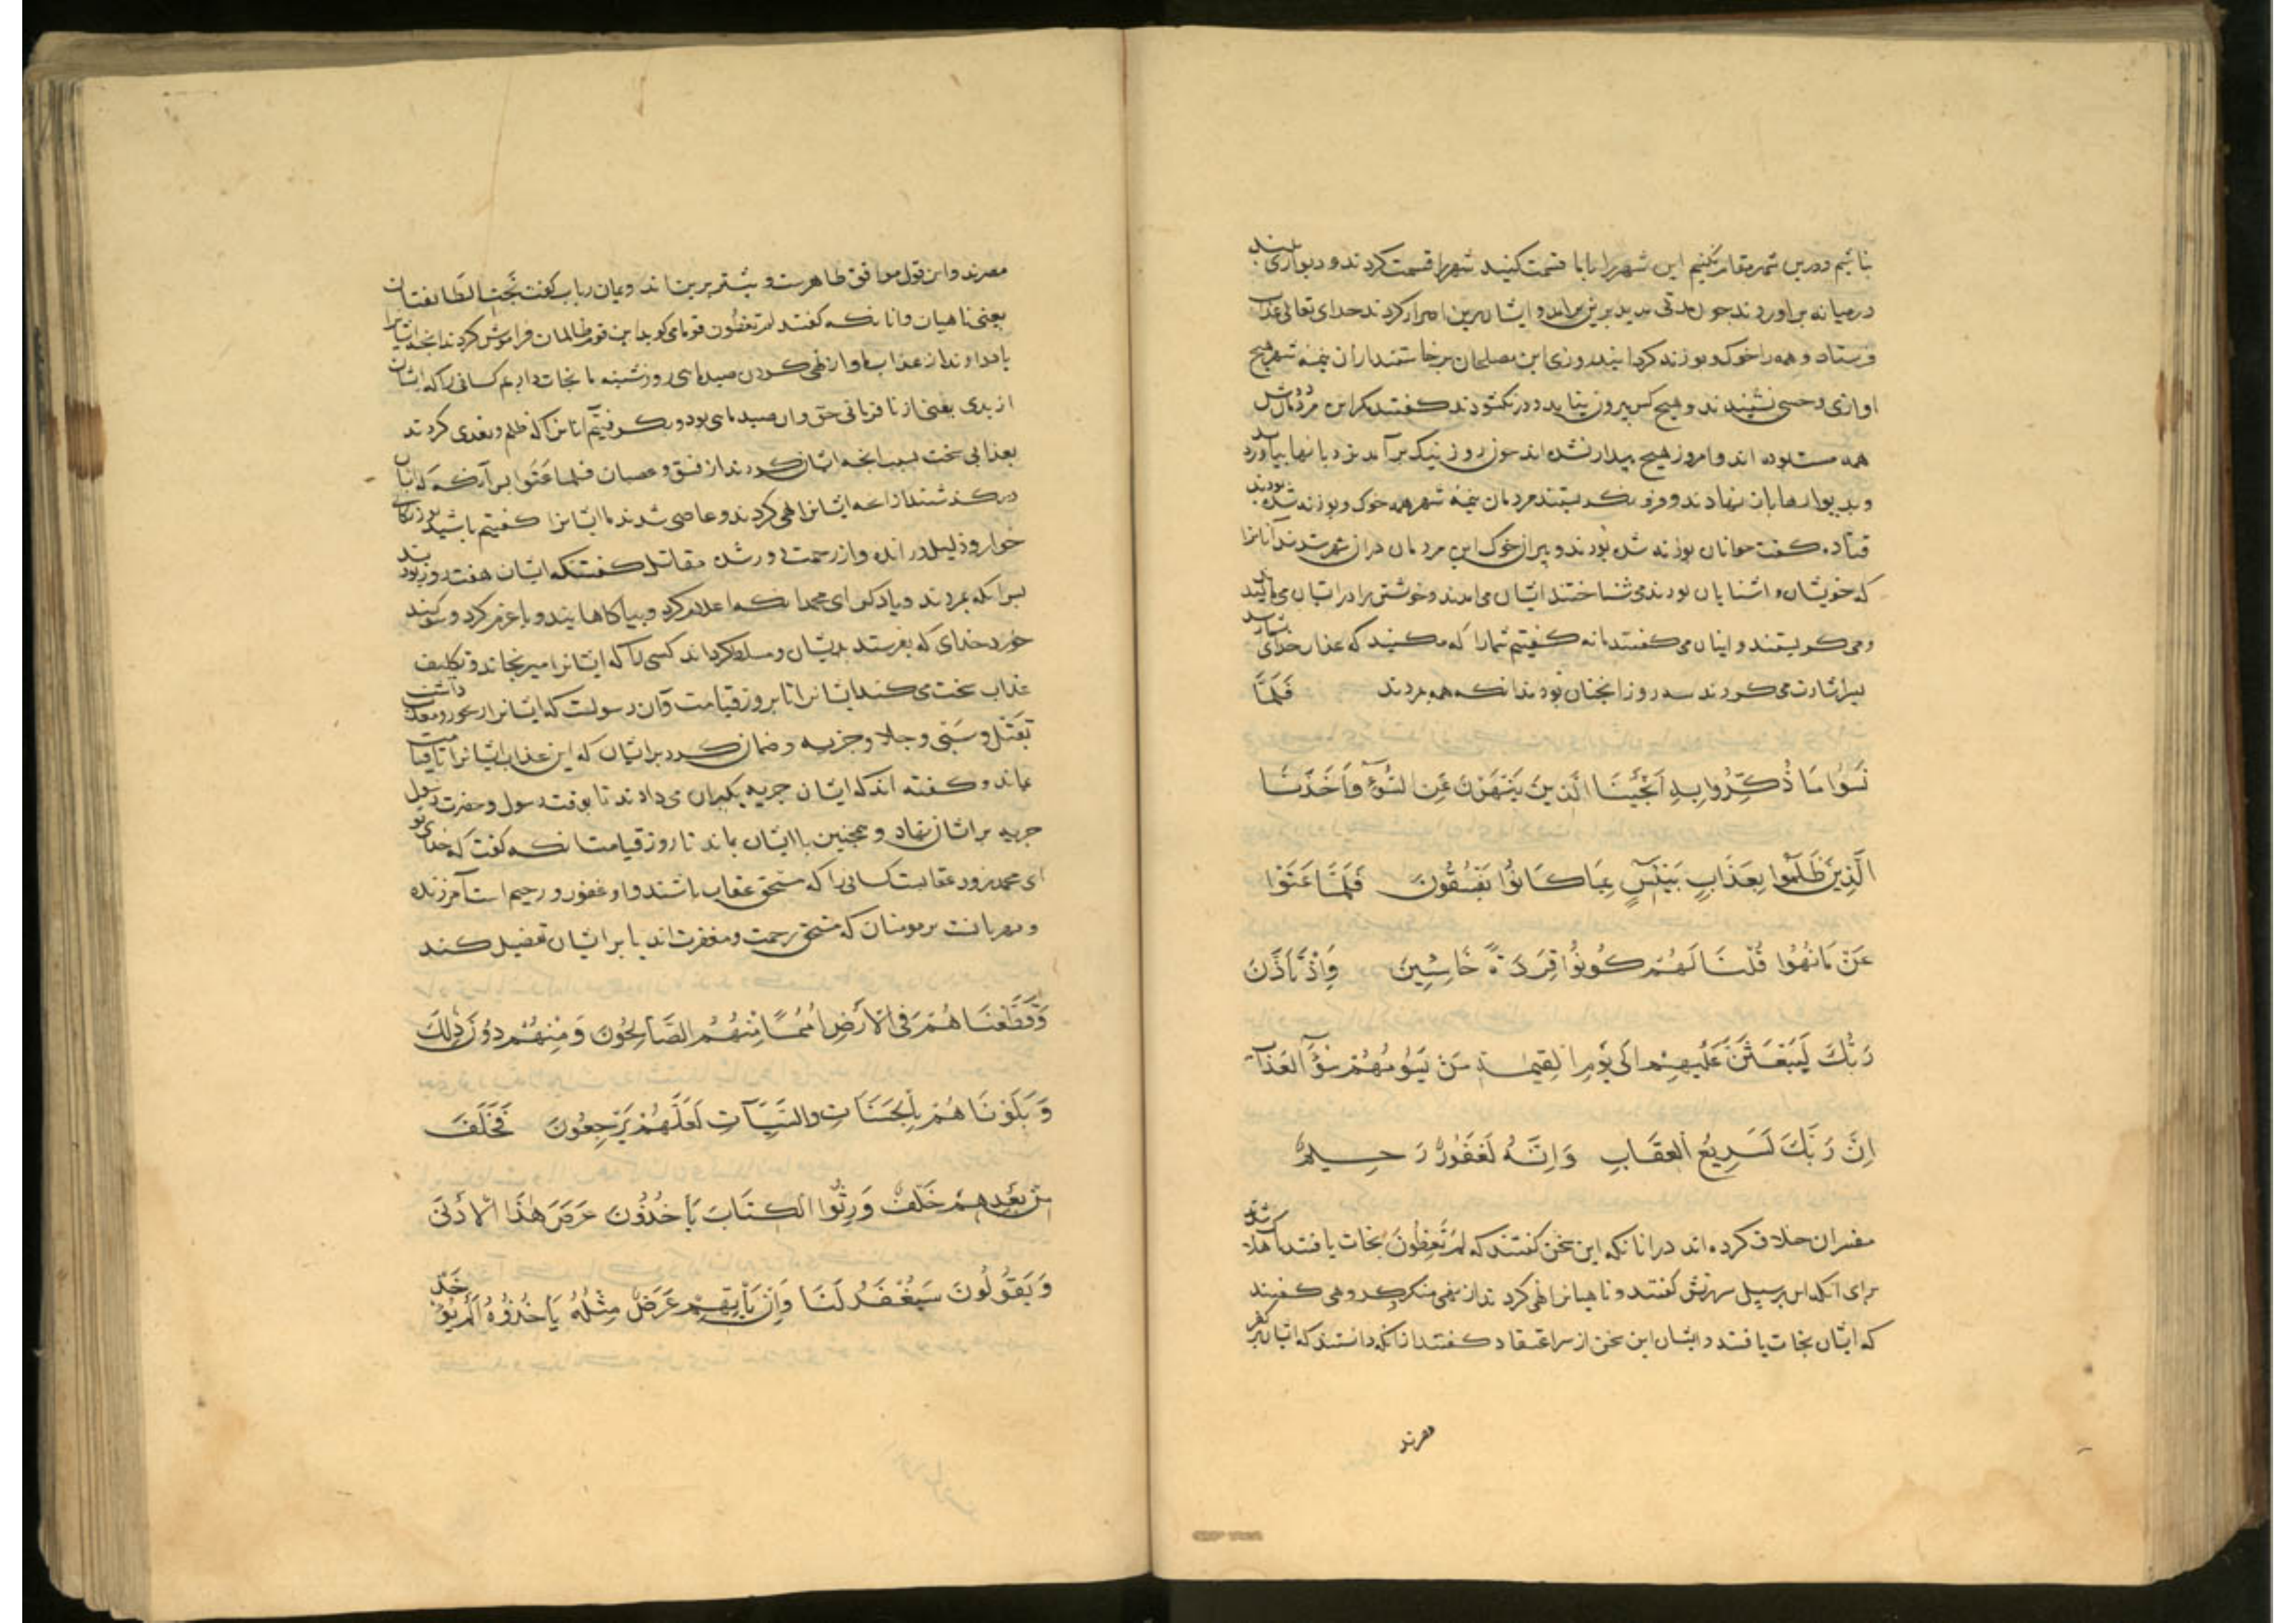 نباشیم و درین شهر مقام نکنیم این شهر را با ما قسمت کنید شهر را قسمت کردند و دیواری بلند
در میانه برآوردند جون مدتی مدید برین برامد و ایشان برین اصرار کردند خدای تعالی عذاب
فرستاد و همه را خوک و بوزنه کردانید روزی این مصلحان برخاستند از ان نیمه شهر هیچ
اوازی و حسی نشنیدند و هیچ کس بیرون نیامد و در نکشودند کفتند مکر این مردمان
همه اند و امروز هیچ بیدار نشده اند جون روز نیک برآمد نردبانها بیاوردند
و بدیوارها باز نهادند و فرو نکریستند مردمان نیمه شهر همه خوک و بوزنه شده بودند
قتاده کفت جوانان بوزنه شده بودند و پیران خوک این مردمان در شهر شدند آنانرا
که خویشان و اشنایان بودند می شناختند ایشان می امدند و خویشتن را در ایشان می مالیدند
و می کریستند و اینان می کفتند ما نه کفتیم شما را که مکنید که عذاب خدای
بسر اشارت می کردند سه روز انجنان بودند انکه همه بمردند فَلَمَّا
نَسُوا مَا ذُكِّرُوا بِهِ اَنْجَيْنَا الَّذِينَ يَنْهَوْنَ عَنِ السُّوءِ وَاَخَذْنَا
الَّذِينَ ظَلَمُوا بِعَذَابٍ بَئِيسٍ بِمَا كَانُوا يَفْسُقُونَ فَلَمَّا عَتَوْا
عَنْ مَا نُهُوا قُلْنَا لَهُمْ كُونُوا قِرَدَةً خَاسِئِينَ وَاِذْ تَاَذَّنَ
رَبُّكَ لَيَبْعَثَنَّ عَلَيْهِمْ اِلَى يَوْمِ الْقِيٰمَةِ مَنْ يَسُومُهُمْ سُوءَ الْعَذَابِ
اِنَّ رَبَّكَ لَسَرِيعُ الْعِقَابِ وَاِنَّهُ لَغَفُورٌ رَحِيمٌ
مفسران خلاف کرده اند در انانکه این سخن کفتند که لم تعظون نجات یافتند یا هلاک شدند
برای انکه این بر سبیل سرزنش کفتند و ناهیانرا نهی کردند از نهی منکر و بعضی کفتند
که ایشان نجات یافتند و ایشان این سخن از سر اعتقاد کفتند از انکه دانستند که ایشان بر کفر
مصرند
مصرند و این قول موافق ظاهرست و بیشتر برین اند و یمان رباب کفت نجت الطائفتان
یعنی ناهیان و انانکه کفتند لم تعظون قوما می کوید این قوم ظالمان فراموش کردند انجه ایشانرا
با یاد دادند از عذاب ما و از نهی کردن صید ماهی روز شنبه ما نجات دادیم کسانی را که ایشان
از بدی یعنی از نافرمانی حق و ان صید ماهی بود و بکرفتیم آنانرا که ظلم و تعدی کردند
بعذابی سخت بسبب انجه ایشان کردند از فسق و عصیان فلما عتوا بس آنکه که ایشان
درکذشتند از انجه ایشانرا نهی کردند و عاصی شدند ما ایشانرا کفتیم باشید بوزنکان
خوار و ذلیل و رانده و از رحمت دور شده مقاتل کفتکه ایشان هفت روز بودند
بس انکه بمردند و یاد کن ای محمد انکه اعلام کرد و بیاکاهانید و یا عزم کرد و سوکند
خورد خدای که بفرستد بدیشان و مسلط کرداند کسی را که ایشانرا میرنجاند و تکلیف
عذاب سخت می کند ایشانرا تا بروز قیامت و آن رسولست که ایشانرا
بقتل و سبی و جلا و جزیه و ضمان کرد بر ایشان که این عذاب ایشانرا تا قیامت
بماند و کفته اند که ایشان جزیه بکبران می دادند تا بوقت رسول و حضرت رسول
جزیه بر ایشان نهاد و همجنین با ایشان بماند تا روز قیامت انکه کفت که خدای تو
ای محمد زود عقابست کسانی را که مستحق عقاب باشند و او غفور و رحیم است آمرزنده
و مهربانست بر مومنان که مستحق رحمت و مغفرت اند یا بر ایشان تفضل کند
وَقَطَّعْنَاهُمْ فِي الْاَرْضِ اُمَمًا مِنْهُمُ الصَّالِحُونَ وَمِنْهُمْ دُونَ ذٰلِكَ
وَبَلَوْنَاهُمْ بِالْحَسَنَاتِ وَالسَّيِّآتِ لَعَلَّهُمْ يَرْجِعُونَ فَخَلَفَ
مِنْ بَعْدِهِمْ خَلْفٌ وَرِثُوا الْكِتَابَ يَاْخُذُونَ عَرَضَ هٰذَا الْاَدْنَى
وَيَقُولُونَ سَيُغْفَرُ لَنَا وَاِنْ يَاْتِهِمْ عَرَضٌ مِثْلُهُ يَاْخُذُوهُ اَلَمْ يُؤْخَذْ